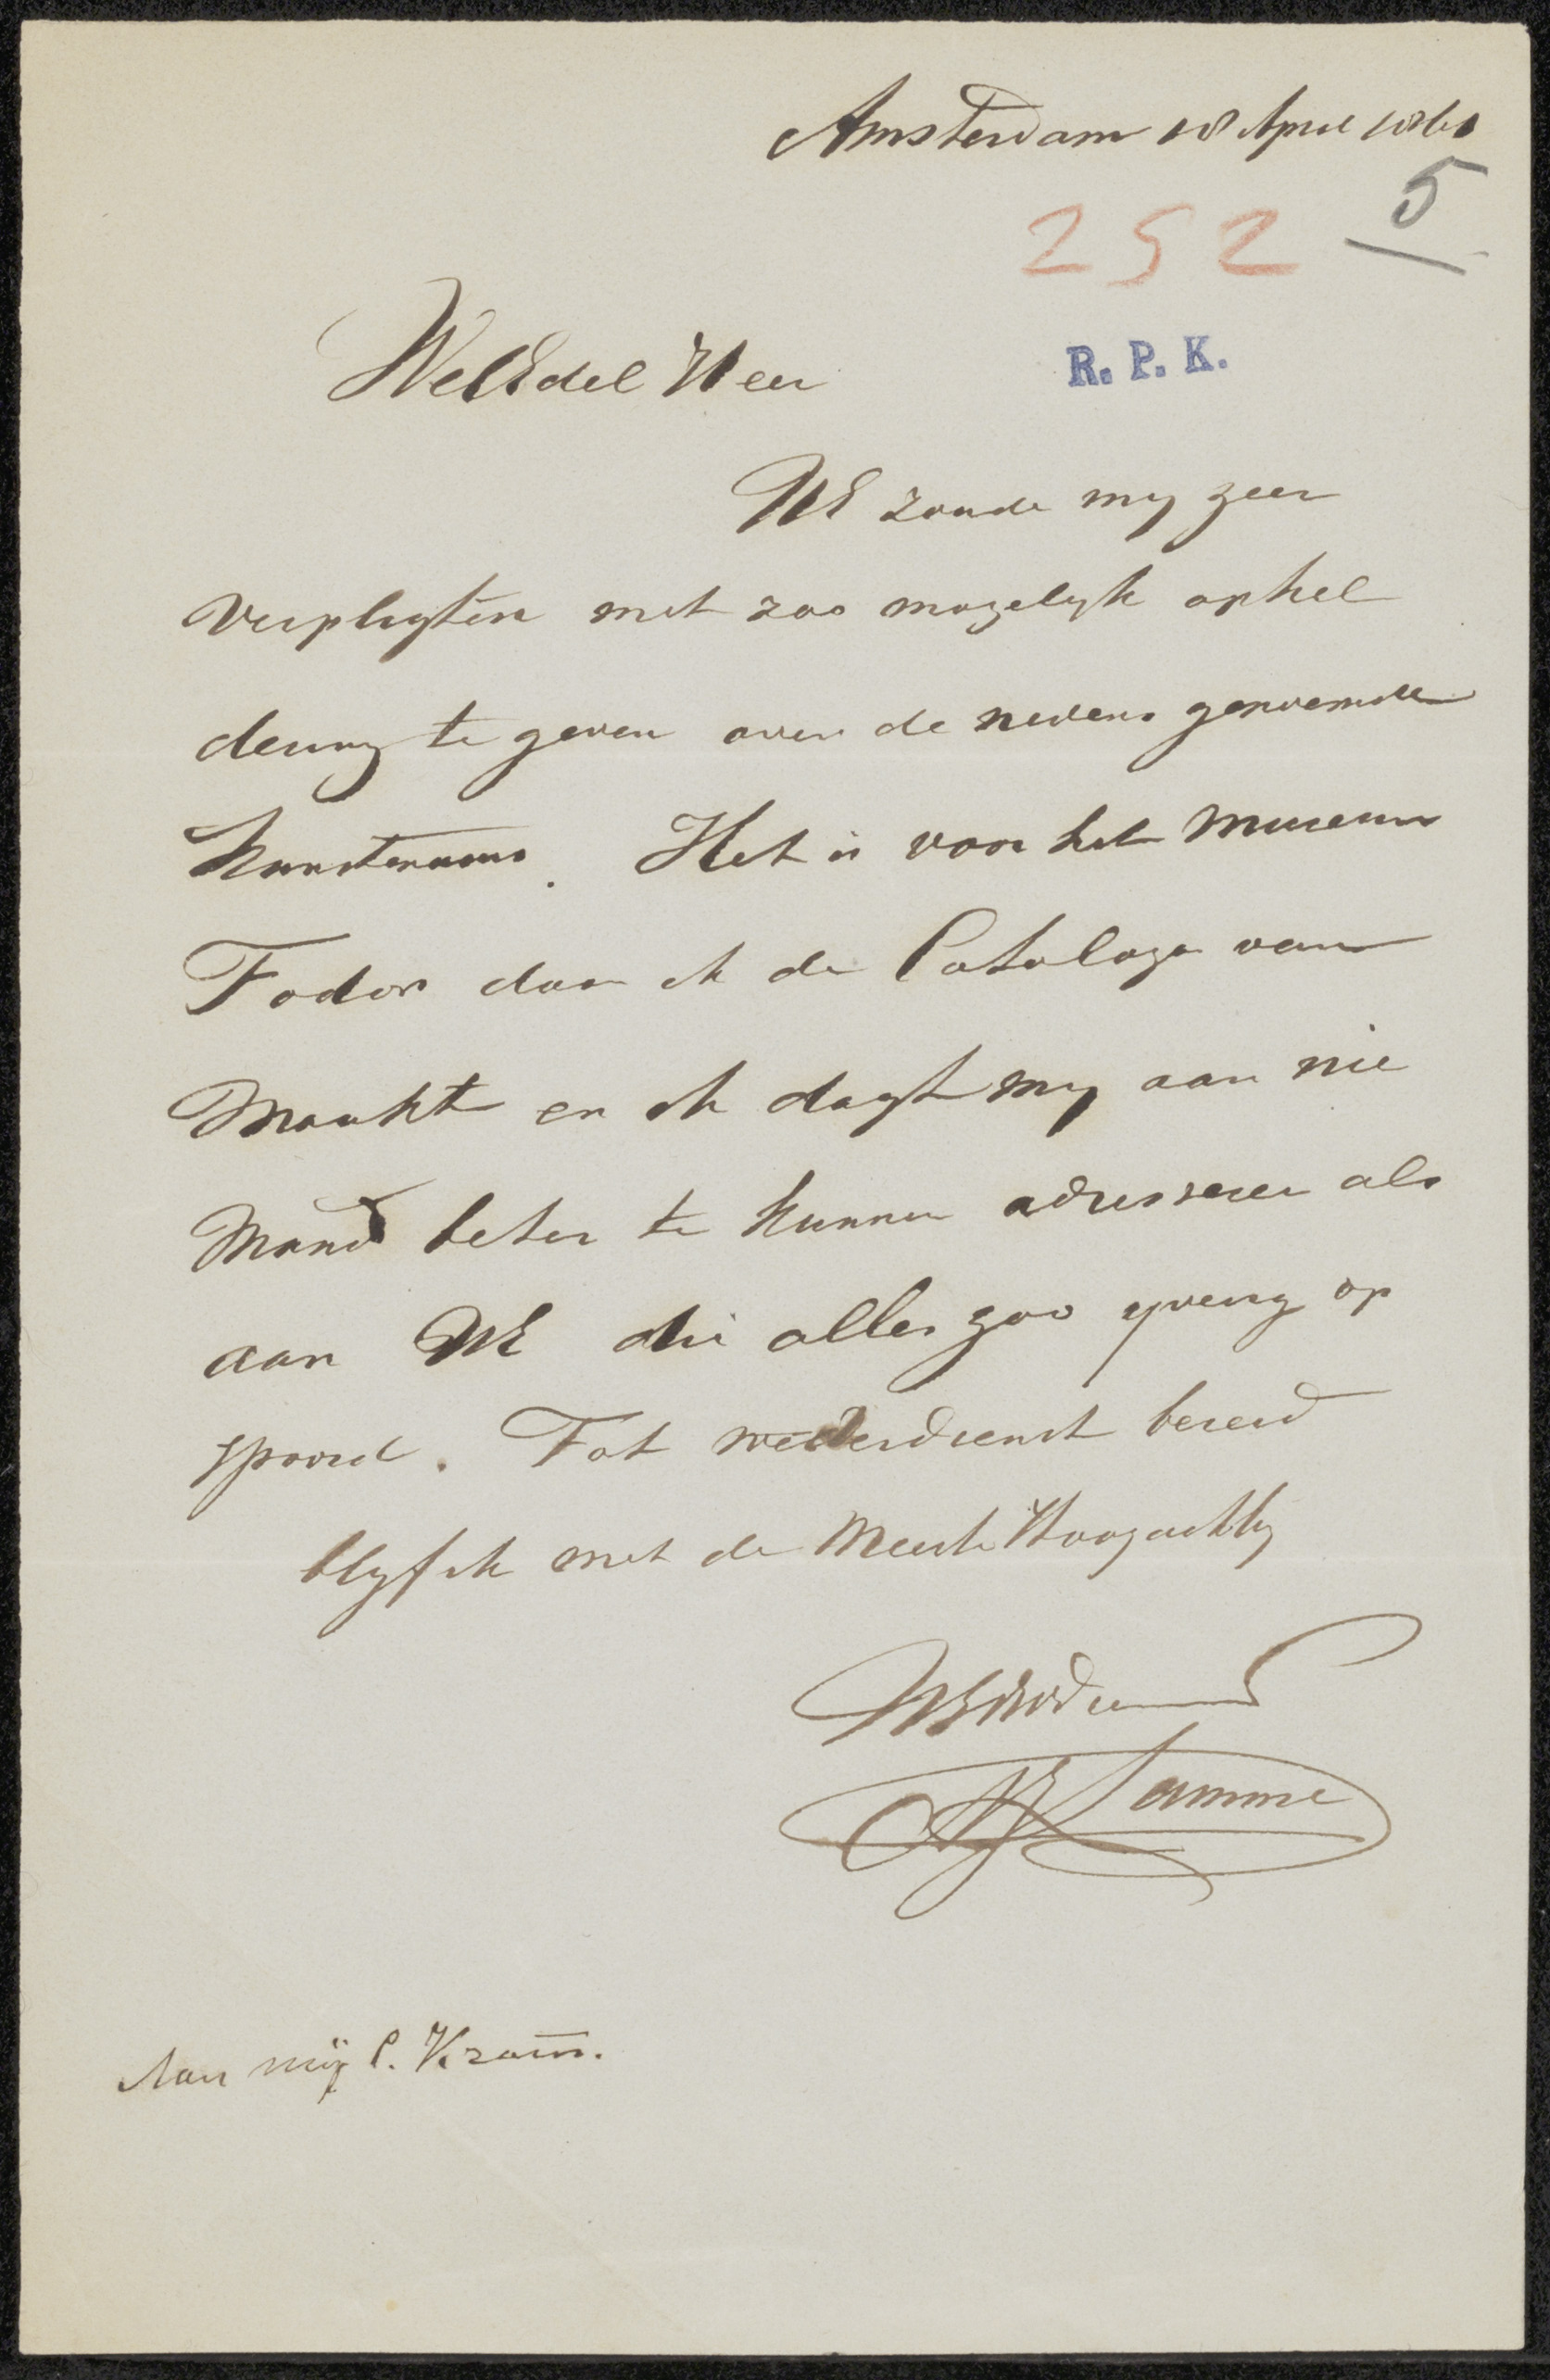 Amsterdam 18 April 1861
5
252
R. P. K.
WelEdel Heer
UE zoude my zeer
verpligten met zoo mogelyk ophel
dering te geven over de nevens genoemde
Kunstenaars. Het is voor het Museum
Fodor daar ik de Catalogus van
Maakt en ik dagt my aan nie
mand beter te kunnen adresseren als
aan UE die alles zoo yverig op
spoord. Tot wederdienst bereid
blyf ik met de Meeste Hoogachtg
UEDWDienaar
Lamme
Aan mij C. Kramm.